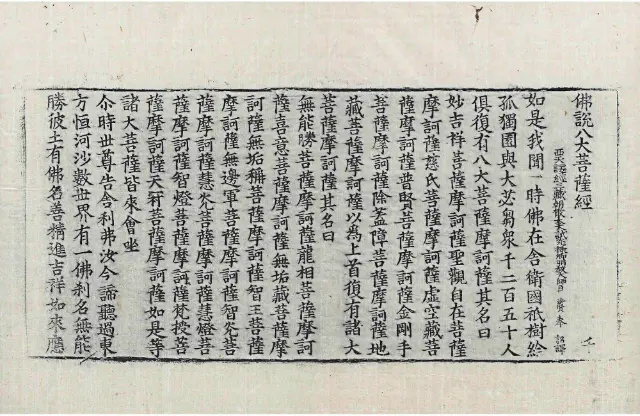 佛說八大菩薩經
奉 詔譯
如是我聞一時佛在舍衛國祇樹給
孤獨園與大苾芻眾千二百五十人
俱復有八大菩薩摩訶薩其名曰
妙吉祥菩薩摩訶薩聖觀自在菩薩
摩訶薩慈氏菩薩摩訶薩虛空藏菩
薩摩訶薩普賢菩薩摩訶薩金剛手
菩薩摩訶薩除蓋障菩薩摩訶薩地
藏菩薩摩訶薩以為上首復有諸大
菩薩摩訶薩其名曰
無能勝菩薩摩訶薩龍相菩薩摩訶
薩喜意菩薩摩訶薩無垢藏菩薩摩
訶薩無垢稱菩薩摩訶薩智王菩薩
摩訶薩無邊軍菩薩摩訶薩智炎菩
薩摩訶薩慧炎菩薩摩訶薩慧燈菩
薩摩訶薩智燈菩薩摩訶薩梵授菩
薩摩訶薩天軒菩薩摩訶薩如是等
諸大菩薩皆來會坐
尒時世尊告舍利弗汝今諦聽過東
方恒河沙數世界有一佛刹名無能
勝彼土有佛名善精進吉祥如來應